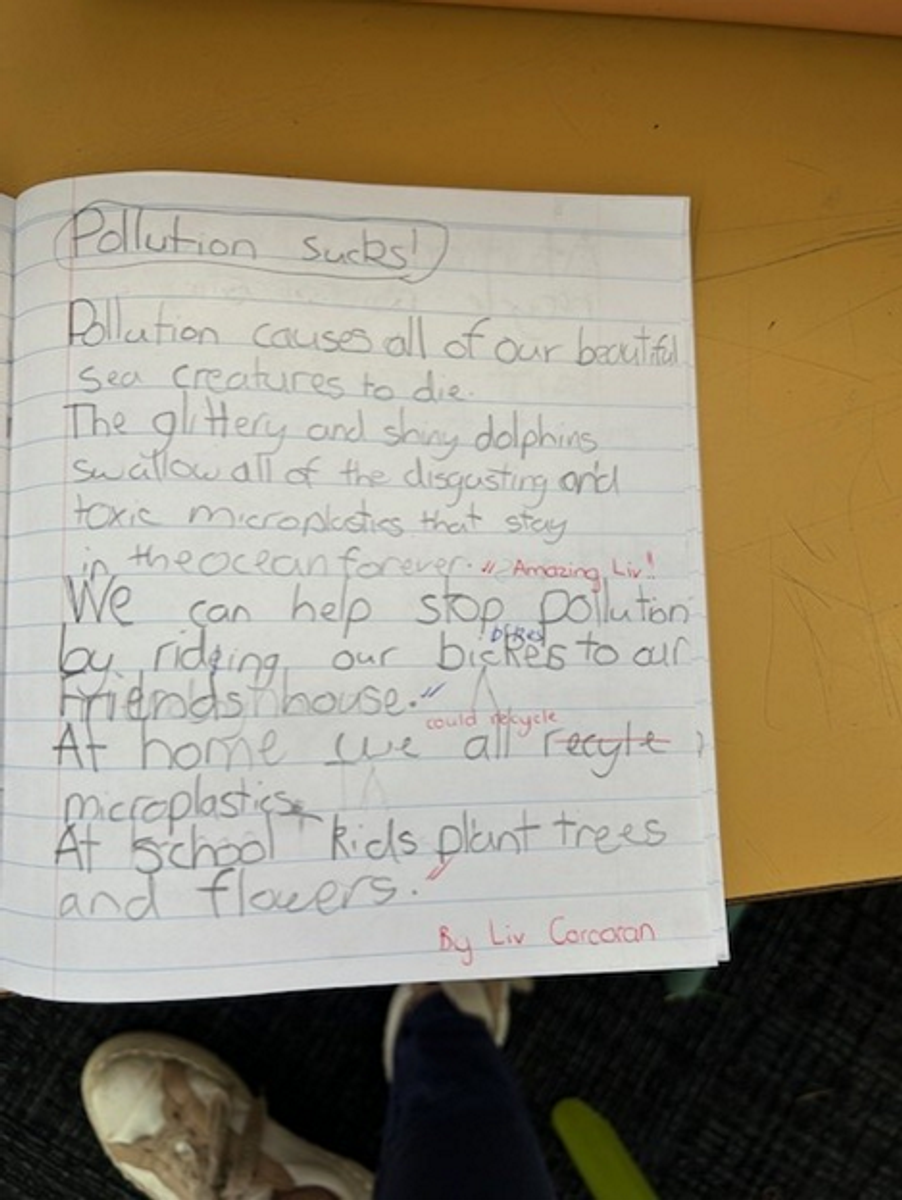 Pollution sucks!
Pollution causes all of our beautiful
sea creatures to die.
The glittery and shiny dolphins
swallow all of the disgusting and
toxic microplastics that stay
in the ocean forever. Amazing Liv!
We can help stop pollution
bikes
by ridging our bickes to our
Friends house.
could recycle
At home we all recyle
microplastics
At school kids plant trees
and flowers.
By Liv Corcoran